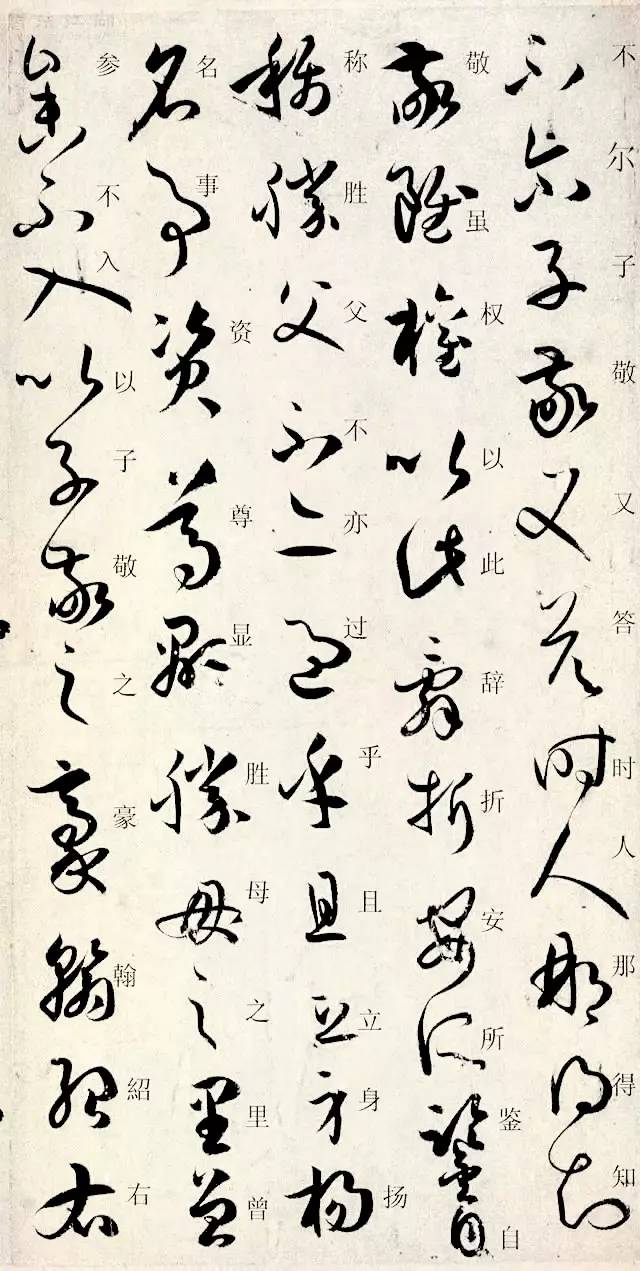 不尔子敬又答时人那得知
敬虽权以此辞折安所鉴自
称胜父不亦过乎且立身扬
名事资尊显胜母之里曾
参不入以子敬之豪翰紹右